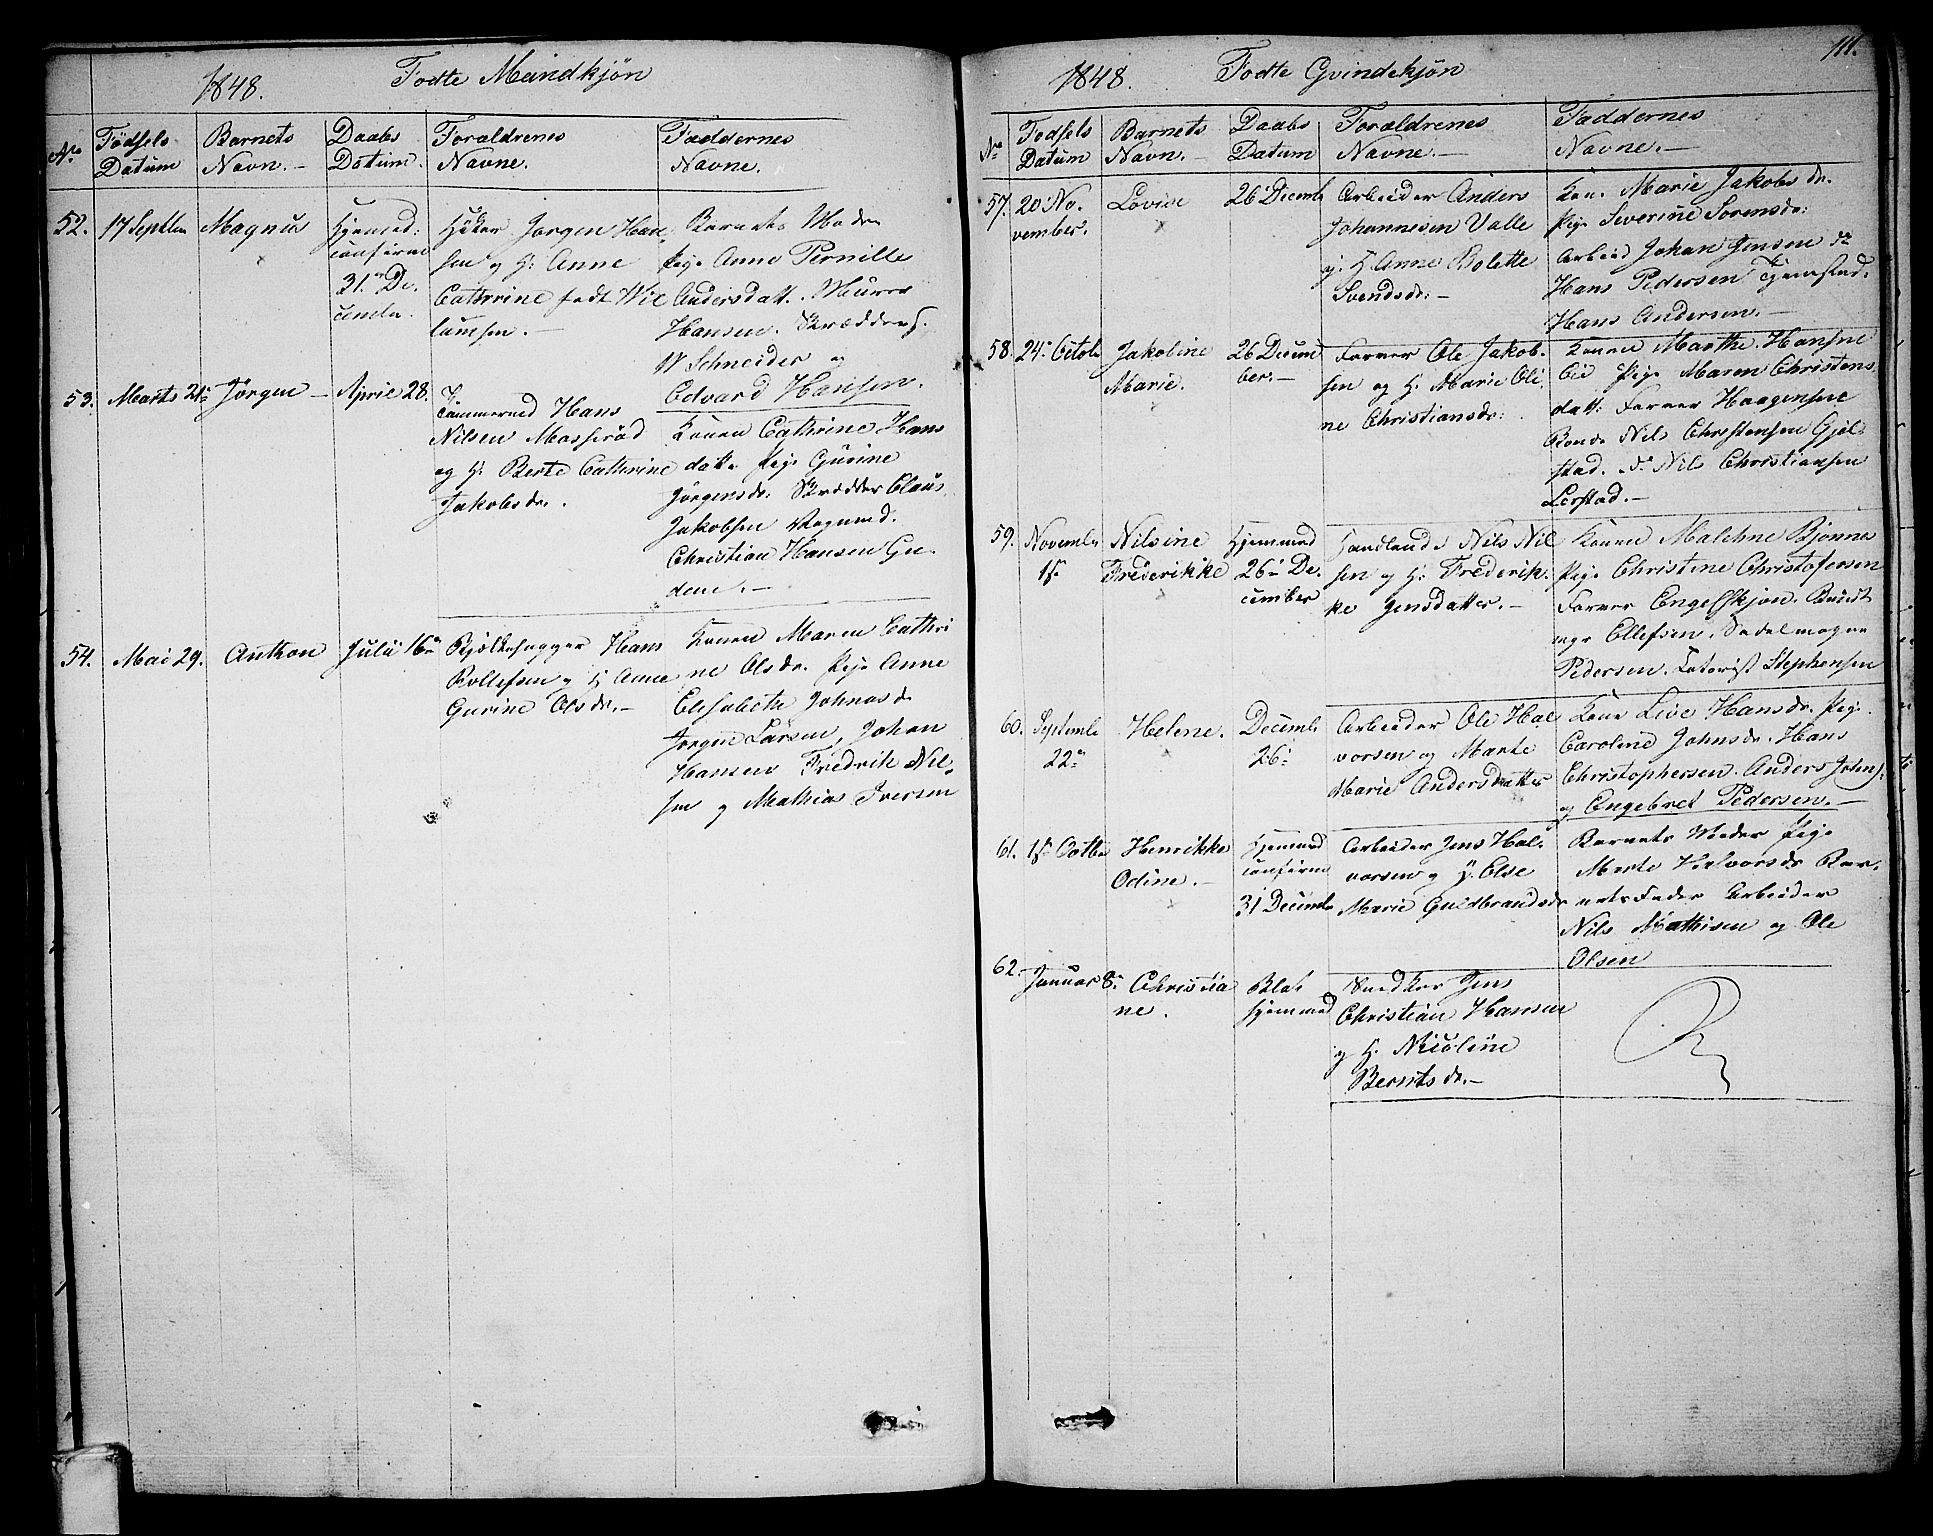 1848.
Fødte Mandkjøn
No
Fødsels Datum
Barnets Navn. -
Daabs Datum.
Forældrenes Navne.
Faddernes Navne.
52.
17 Septbr
Magnus
Hjemmed:
confirm
31. De
cembr
Høker Jørgen Han
sen og H: Anne
Cathrine født Wil
lumsen. -
Barnets Moder
Pige Anne Pernille
Andersdatt. Murer
Hansen. Skrædderg.
W Schneider og
Edvard Hansen.
53.
Marts 21
Jørgen -
April 28.
Tømmermd Hans
Nilsen Mosserød
og H: Berte Cathrine
Jakobsdr.
Konen Cathrine Hans
datter Pige Gurine
Jörgensdr: Skrædder Claus
Jakobsen Vognmd.
Christian Hansen Gu
dem. -
54.
Mai 29.
Anthon
Juli 16
Bjelkehugger Hans
Rollefsen og H Anne
Gurine Olsdr. -
Konen Maren Cathri
ne Olsdr. Pige Anne
Elisabeth Johnsdr
Jörgen Larsen, Johan
Hansen Fredrik Nil-
sen og Mathias Iversen
111.
1848.
Fødte Qvindekjøn
No
Fødsels Datum
Barnets Navn. -
Daabs Datum
Forældrenes Navne. -
Faddernes Navne. -
57.
20 No-
vember.
Lovise
26 Decemb
Arbeider Anders
Johannesen Valle
og H. Anne Bolette
Svendsdr: -
Kon. Marie Jakobsdr.
Pige Severine Sørensdr:
Arbeid Johan Jensen do
Hans Pedersen Tjemstad.
Hans Andersen. -
58.
24 Octob
Jakobine
Marie.
26 Decem
ber. -
Farver Ole Jakob-
sen og H. Marie Oli
ne Christiansdr:
Konen Marthe Hansine
Pige Maren Christens
datt: Farver Haagensen
Bonde Nils Christensen Gjøl
stad. do Nils Christiansen
Lerstad. -
59.
Novembr
15
Nilsine
Frederikke
Hjemmed
26 De-
cember
Handlende Nils Nil
sen og H: Frederik-
ke Jensdatter. -
Konen Malehne Bjønnes
Pige Christine Christofersen
Farver Engelskjøn. Bundt
mgr Ellefsen. Sadelmager
Pedersen. Stephensen
60.
Septembr
22
Helene.
Decemb
26
Arbeider Ole Hal
vorsen og Marte
Marie Andersdatter
Kone Live Hansdr. Pige
Caroline Johnsdr. Hans
Christophersen. Anders Johns.
og Engebret Pedersen. -
61.
15 Octbr
Henrikke
Odine. -
Hjemmed
confirm
31 Decemb
Arbeider Jens Hal-
vorsen og H. Else
Marie Guldbrandsdr
Barnets Moder Pige
Marte Halvorsdr Bar-
nets Fader Arbeider
Nils Mathisen og Ole
Olsen
62.
Januar 8
Christia
ne.
Blot
hjemmed
Snedker Jens
Christian Hansen
og H. Nicoline
Berntsdr. -